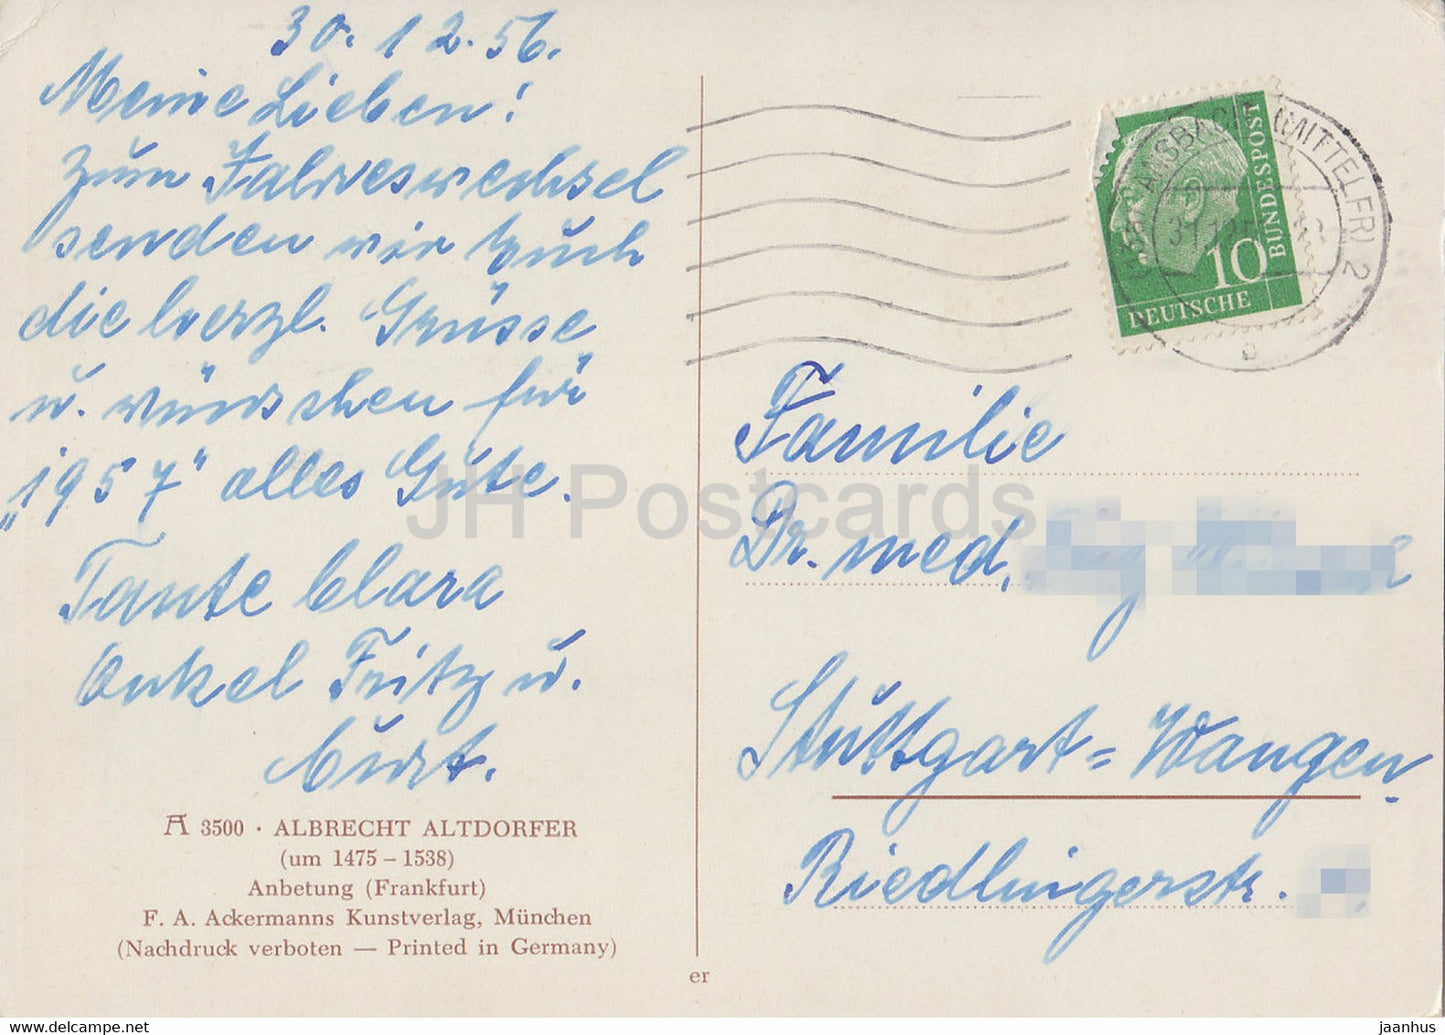 30.12.56.
Meine Lieben!
Zum Jahreswechsel
senden wir Euch
die herzl. Grüsse
u. wünschen für
"1957" alles Gute.
Tante Clara
Onkel Fritz u.
Curt.
A 3500 · ALBRECHT ALTDORFER
(um 1475 – 1538)
Anbetung (Frankfurt)
F. A. Ackermanns Kunstverlag, München
(Nachdruck verboten — Printed in Germany)
er
ANSBACH (MITTELFR) 2
10
DEUTSCHE
BUNDESPOST
b
Familie
Dr. med.
Stuttgart=Wangen
Riedlingerstr.
JH Postcards
www.delcampe.net
jaanhus